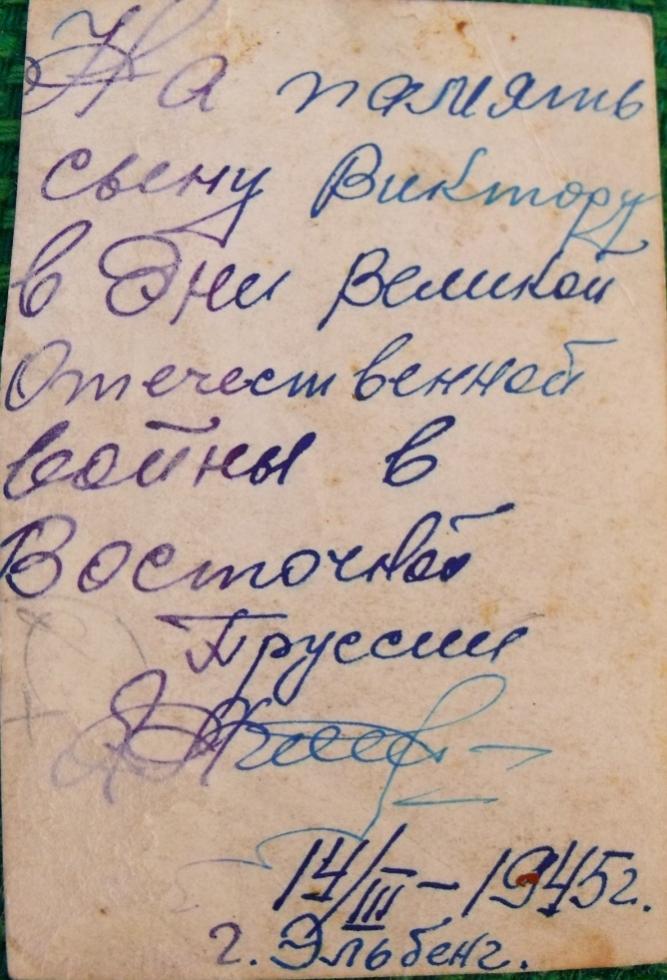 На память
сыну Виктору
в Дни Великой
Отечественной
войны в
Восточной
Пруссии
14/III-1945г.
г. Эльбенг.